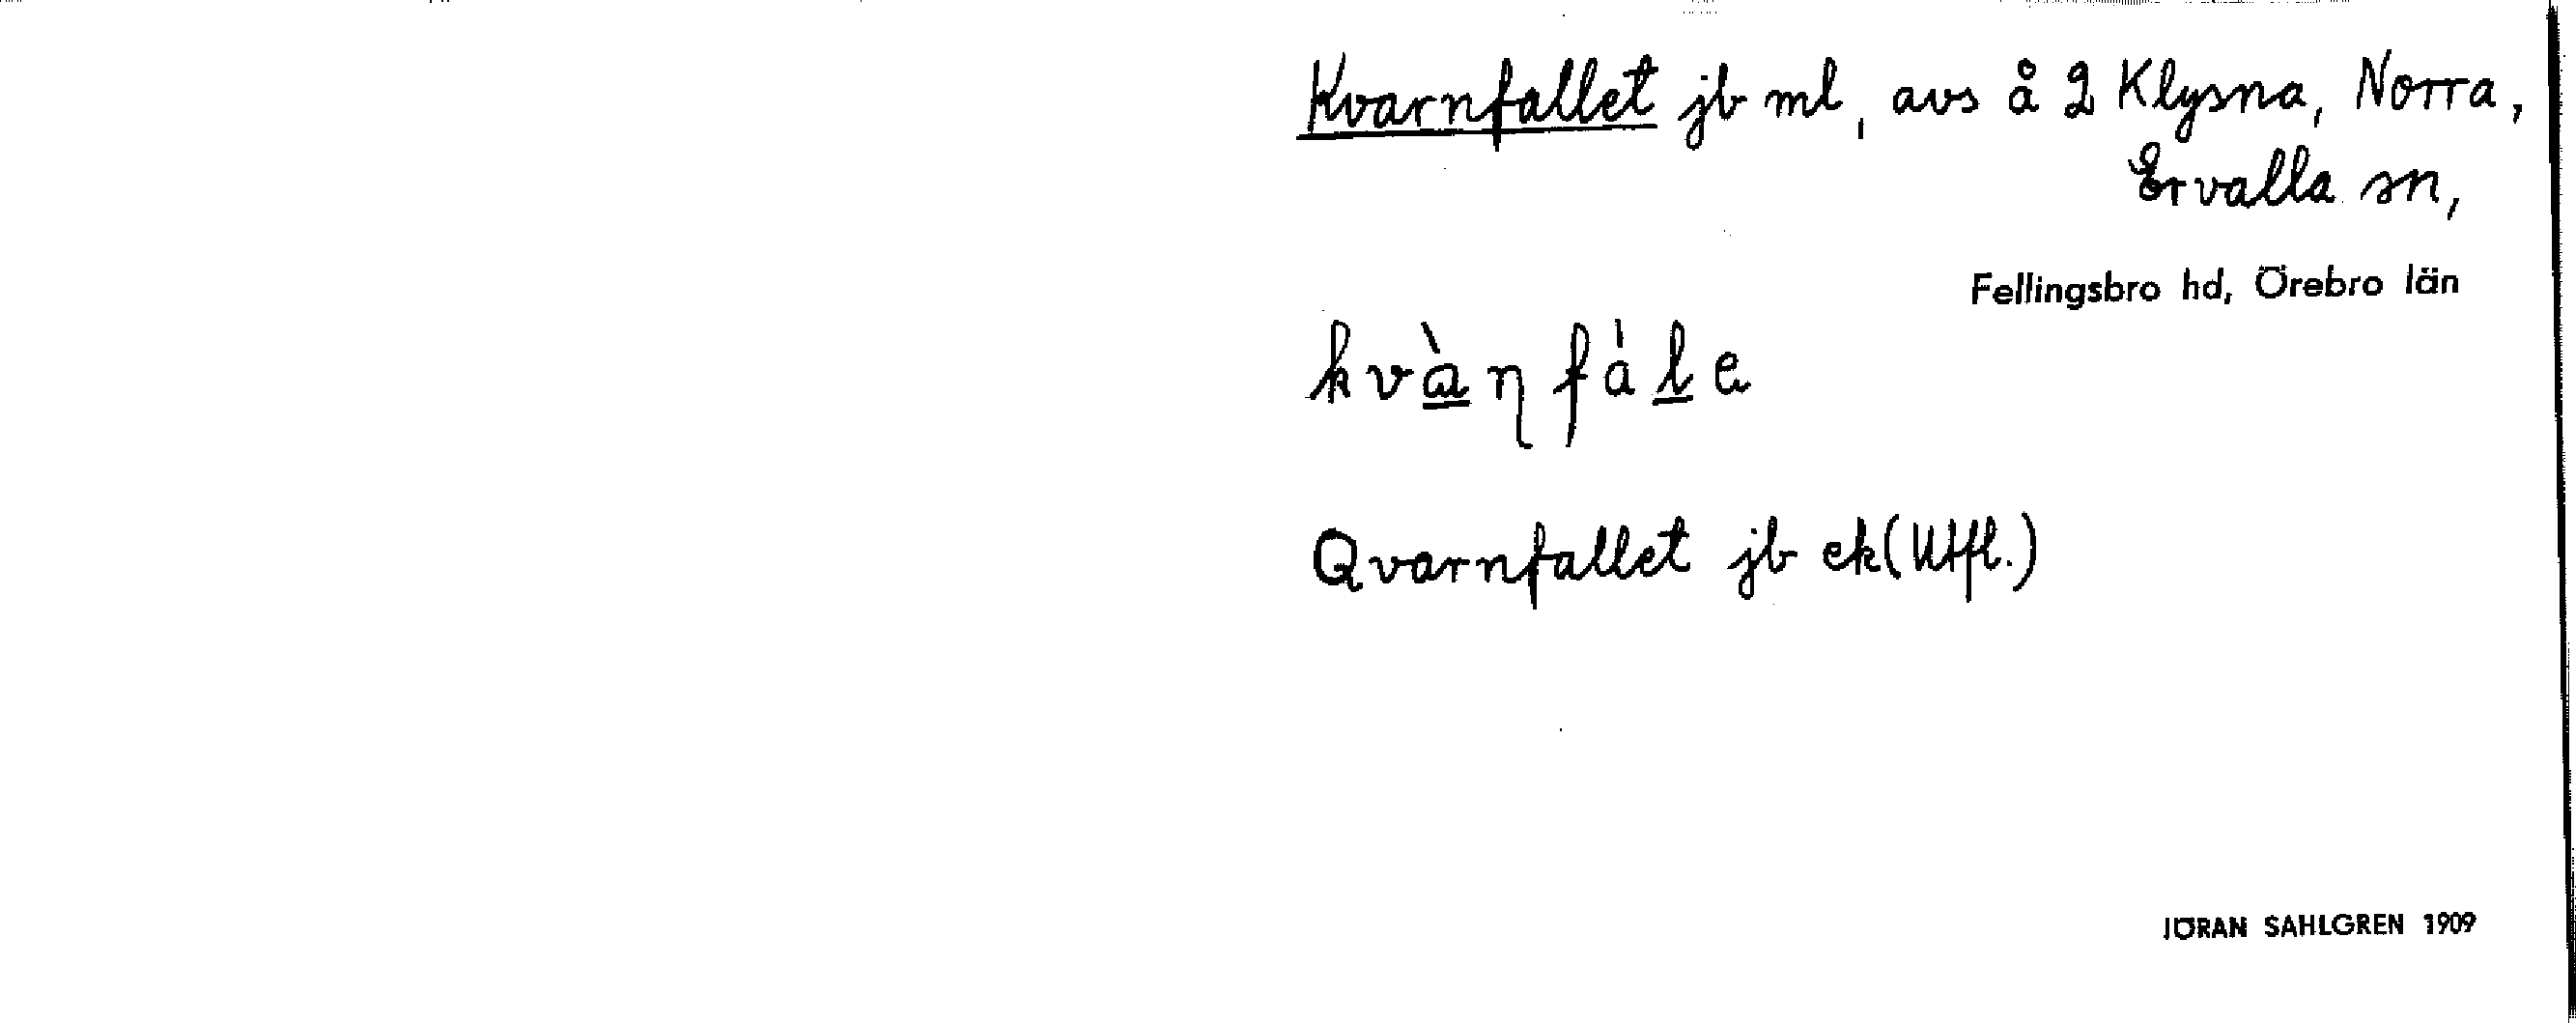 Kvarnfallet jb ml, avs å 2 Klysna, Norra,
Ervalla sn,
Fellingsbro hd, Örebro län
kvàṉfàḻe
Qvarnfallet jb ek (Utfl.)
JÖRAN SAHLGREN 1909